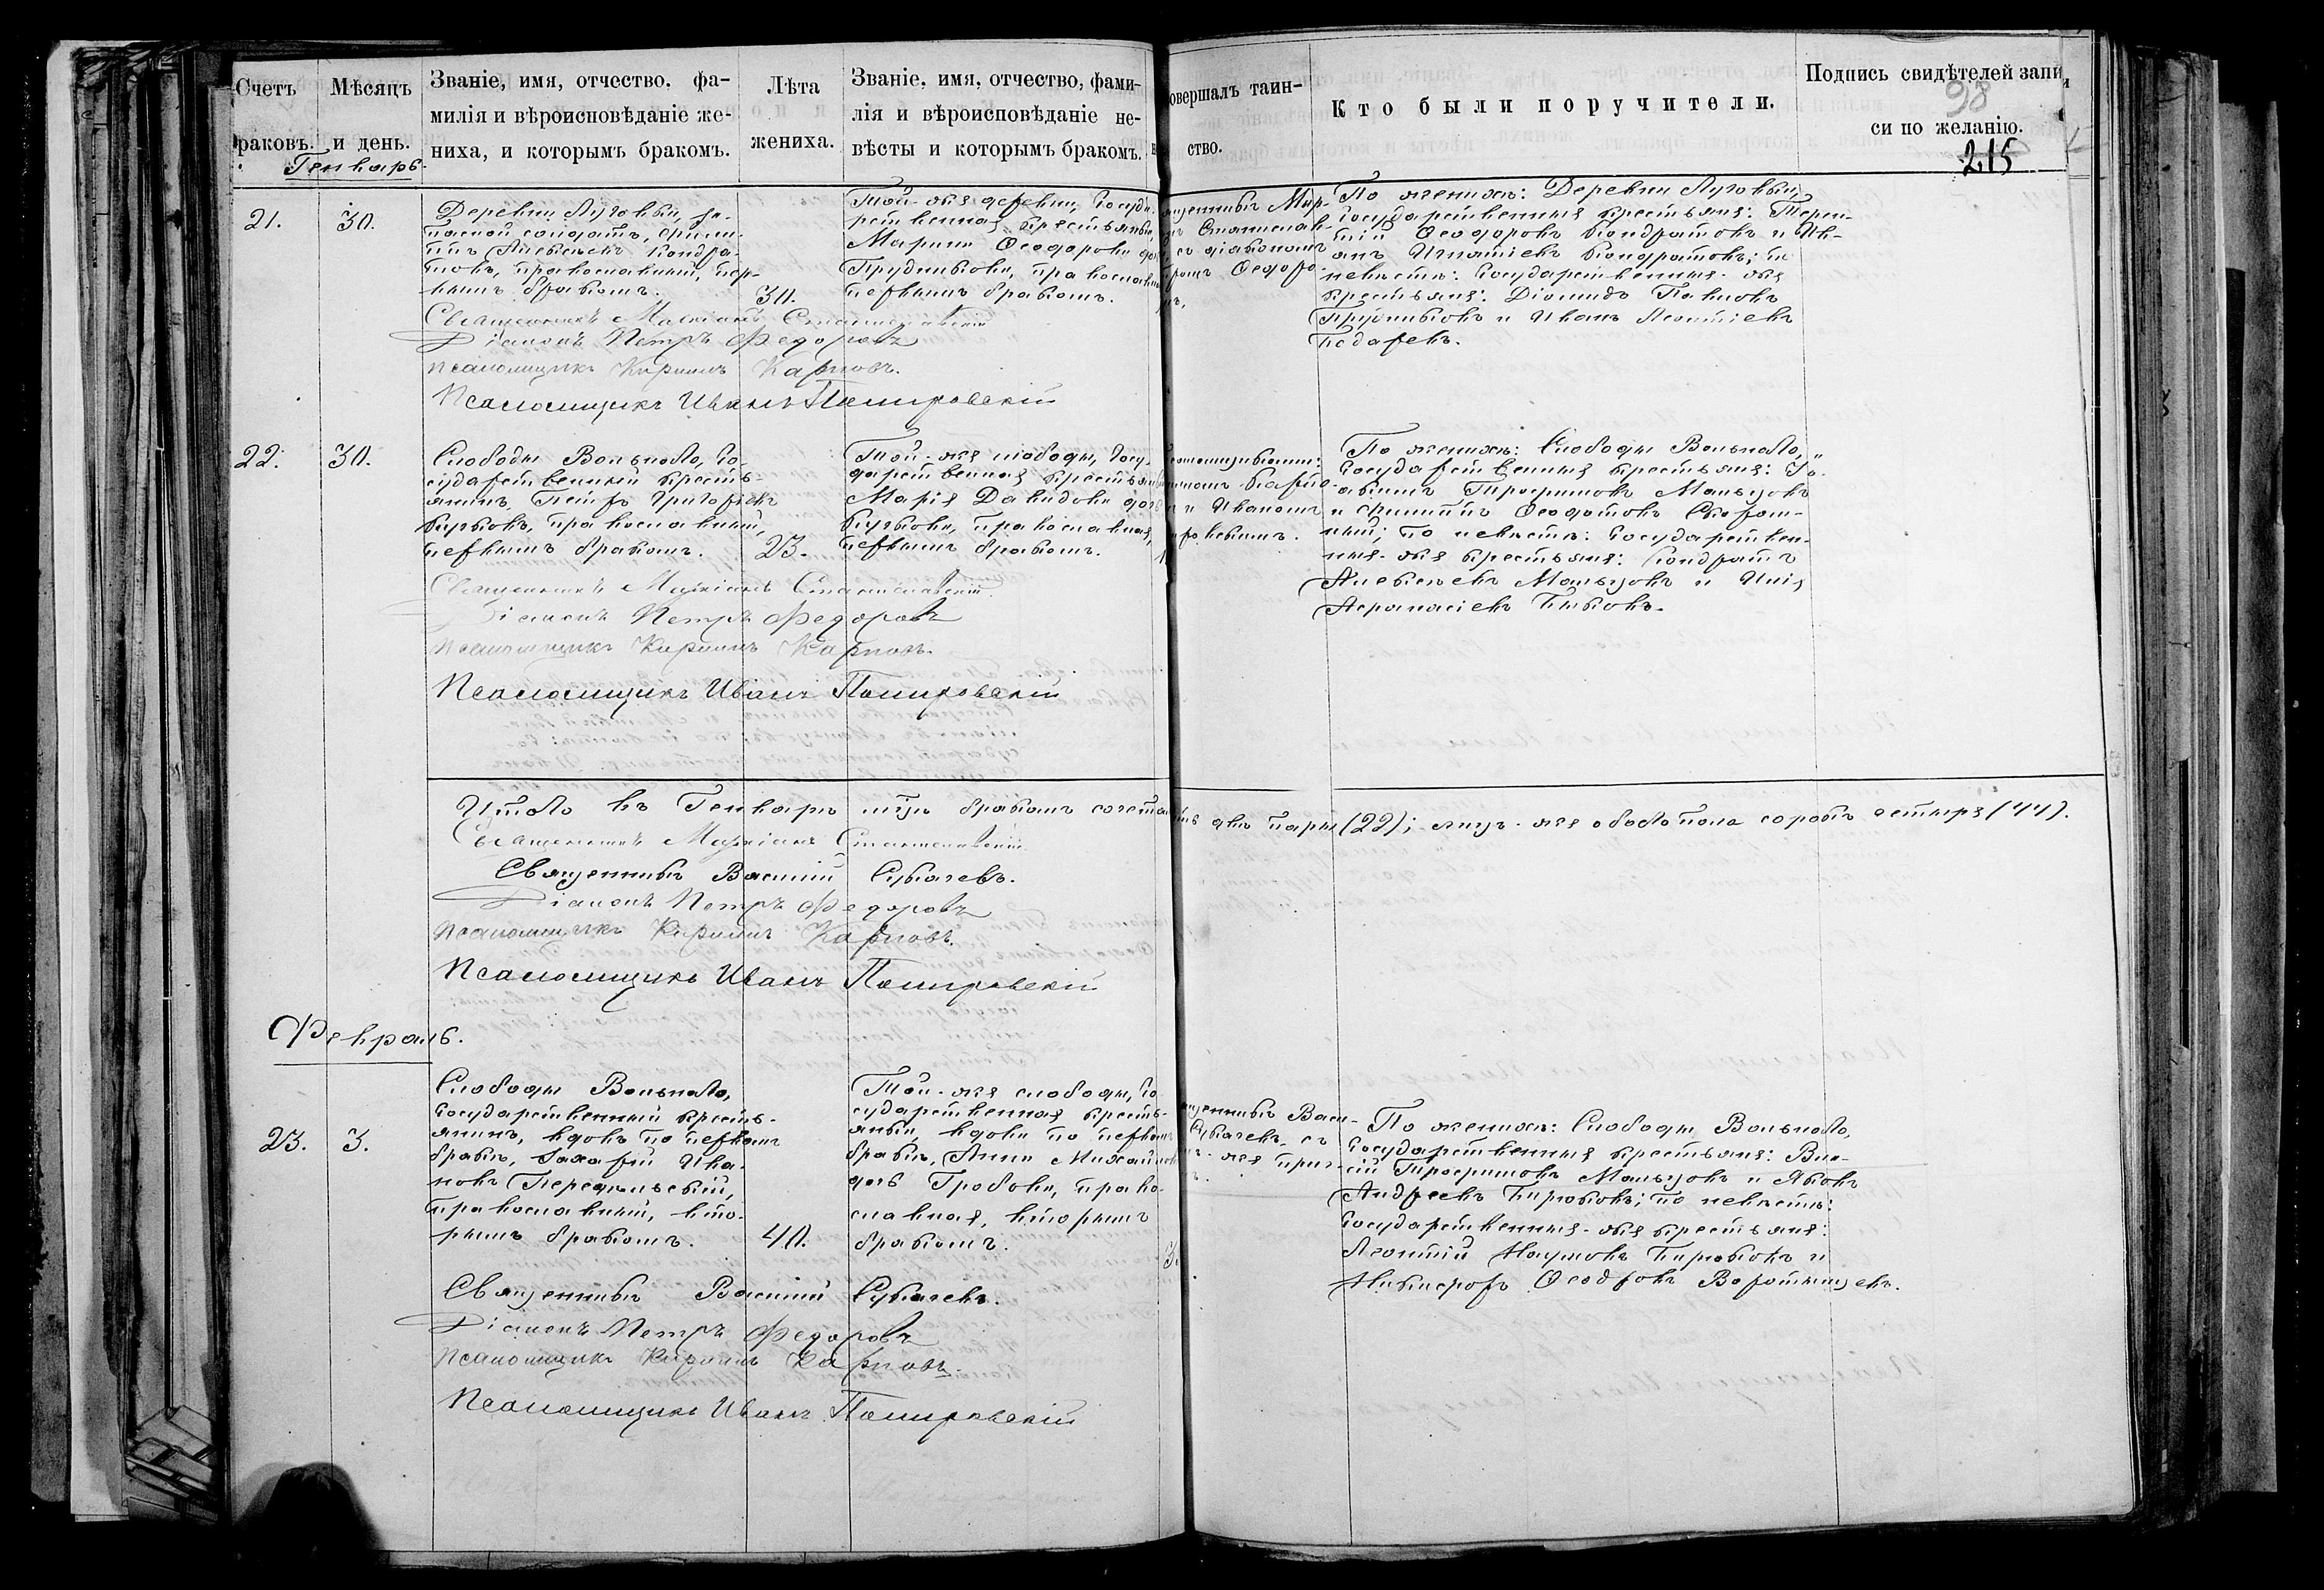 Счетъ
раковъ.
Мѣсяцъ
и день.
Званіе, имя, отчество, фа-
милія и вѣроисповѣданіе же-
ниха, и которымъ бракомъ.
Лѣта
жениха.
Званіе, имя, отчество, фами-
лія и вѣроисповѣданіе не-
вѣсты и которымъ бракомъ.
овершалъ таин-
ство.
Кто были поручители.
Подпись свидѣтелей запи
си по желанію.
98
215
Генварь
21.
30.
Деревни Луговый, за-
пасной солдатъ, Филип-
пъ Алексѣевъ Кондра-
товъ, православный, пер-
вымъ бракомъ.
30.
Той-же деревни, Госуда-
рственная крестьянка,
Марина Ѳеодорова до
Прудникова, православн
первымъ бракомъ.
съ діакономъ
Петромъ Ѳеодоро-
По женихѣ: Деревни Луговый,
Государственныя крестьяне: Терен-
тій Ѳеодоровъ Кондратовъ и Ив-
анъ Игнатіевъ Кондратовъ; по
невѣстѣ: Государственные-же
крестьяне: Діомидъ Павловъ
Прудниковъ и Иванъ Леонтіевъ
Священникъ Маркіанъ Станиславскій
Діаконъ Петръ Федоровъ
Псаломщикъ Кириллъ Карповъ.
Псаломщикъ Иванъ
22.
30.
Слободы Вольново, Го-
сударственный кресть-
янинъ, Петръ Григорьевъ
православный,
первымъ бракомъ.
23.
Той-же слободы, Госу-
дарственная крестьянк
Марія Давидова доч
православная,
первымъ бракомъ.
и Иваномъ
По женихѣ: Слободы Вольново,
Государственныя крестьяне: Іо-
акимъ Трофимовъ Мальцовъ
и Филиппъ Ѳеодотовъ
по невѣстѣ: Государствен-
ныя-же крестьяне: Кондратъ
Алексѣевъ Мальцовъ и Илія
Аѳанасіевъ Быковъ.
Священникъ Маркіанъ Станиславскій
Діаконъ Петръ Федоровъ
Псаломщикъ Кириллъ Карповъ.
Псаломщикъ Иванъ
Итого въ Генварѣ м-цѣ бракомъ сочета двѣ пары (22); лицъ-же обоего пола сорокъ четыре (44).
Священникъ Маркіанъ Станиславскій
Священникъ Василій Сукачевъ.
Діаконъ Петръ Федоровъ
Псаломщикъ Кириллъ Карповъ.
Псаломщикъ Иванъ
Февраль.
23.
3.
Слободы Вольново,
Государственный кресть-
янинъ, вдовъ по первомъ
бракѣ, Захарій Ива-
новъ
православный, вто-
рымъ бракомъ.
40.
Той-же слободы, Го-
сударственная кресть-
янка, вдова по первом
бракѣ, Анна Михайлов
дочь Гробова, право-
славная, вторымъ
бракомъ.
3.
щенникъ Васи-
Сукачевъ, съ
По женихѣ: Слободы Вольново,
Государственныя крестьяне: Вас-
сій Трофимовъ Мальцовъ и Яковъ
Андреевъ Бирюковъ; по невѣстѣ:
Государственныя-же крестьяне:
Леонтій Наумовъ Бирюковъ и
Никифоръ Ѳеодоровъ
Священникъ Василій Сукачевъ.
Діаконъ Петръ Федоровъ
Псаломщикъ Кириллъ Карповъ.
Псаломщикъ Иванъ